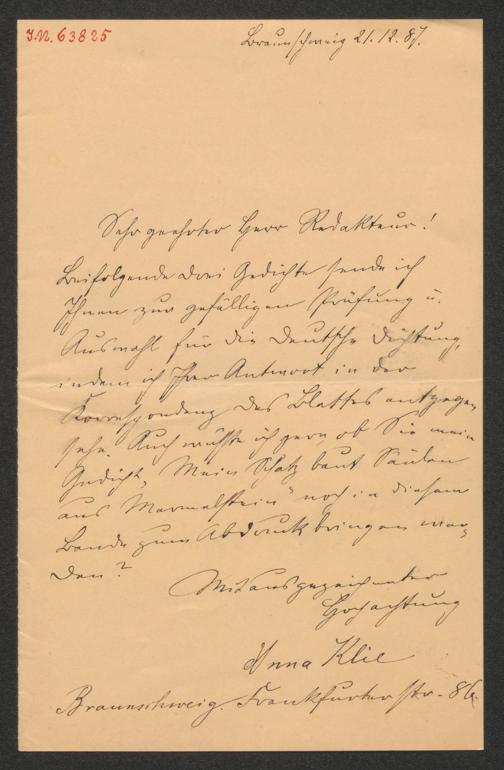 I.N. 63825
Braunschweig 21.12.87.
Sehr geehrter Herr Redakteur!
Beifolgende drei Gedichte sende ich
Ihnen zur gefälligen Prüfung u.
Auswahl für die Deutsche Dichtung,
indem ich Ihrer Antwort in der
Korrespondenz des Blattes entgegen
sehe. Auch wüßte ich gern ob Sie mein
Gedicht „Mein Schatz baut Säulen
aus Marmelstein" noch in diesem
Bande zum Abdruck bringen wer-
den?
Mit ausgezeichneter
Hochachtung
Anna Klie
Braunschweig. Frankfurterstr.